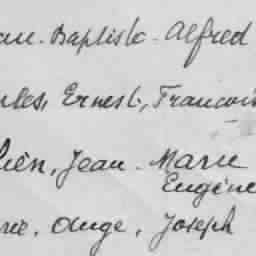 Baptiste - Alfred
Ernest, Francois
Jean - Marie
Eugène
Ange, Joseph